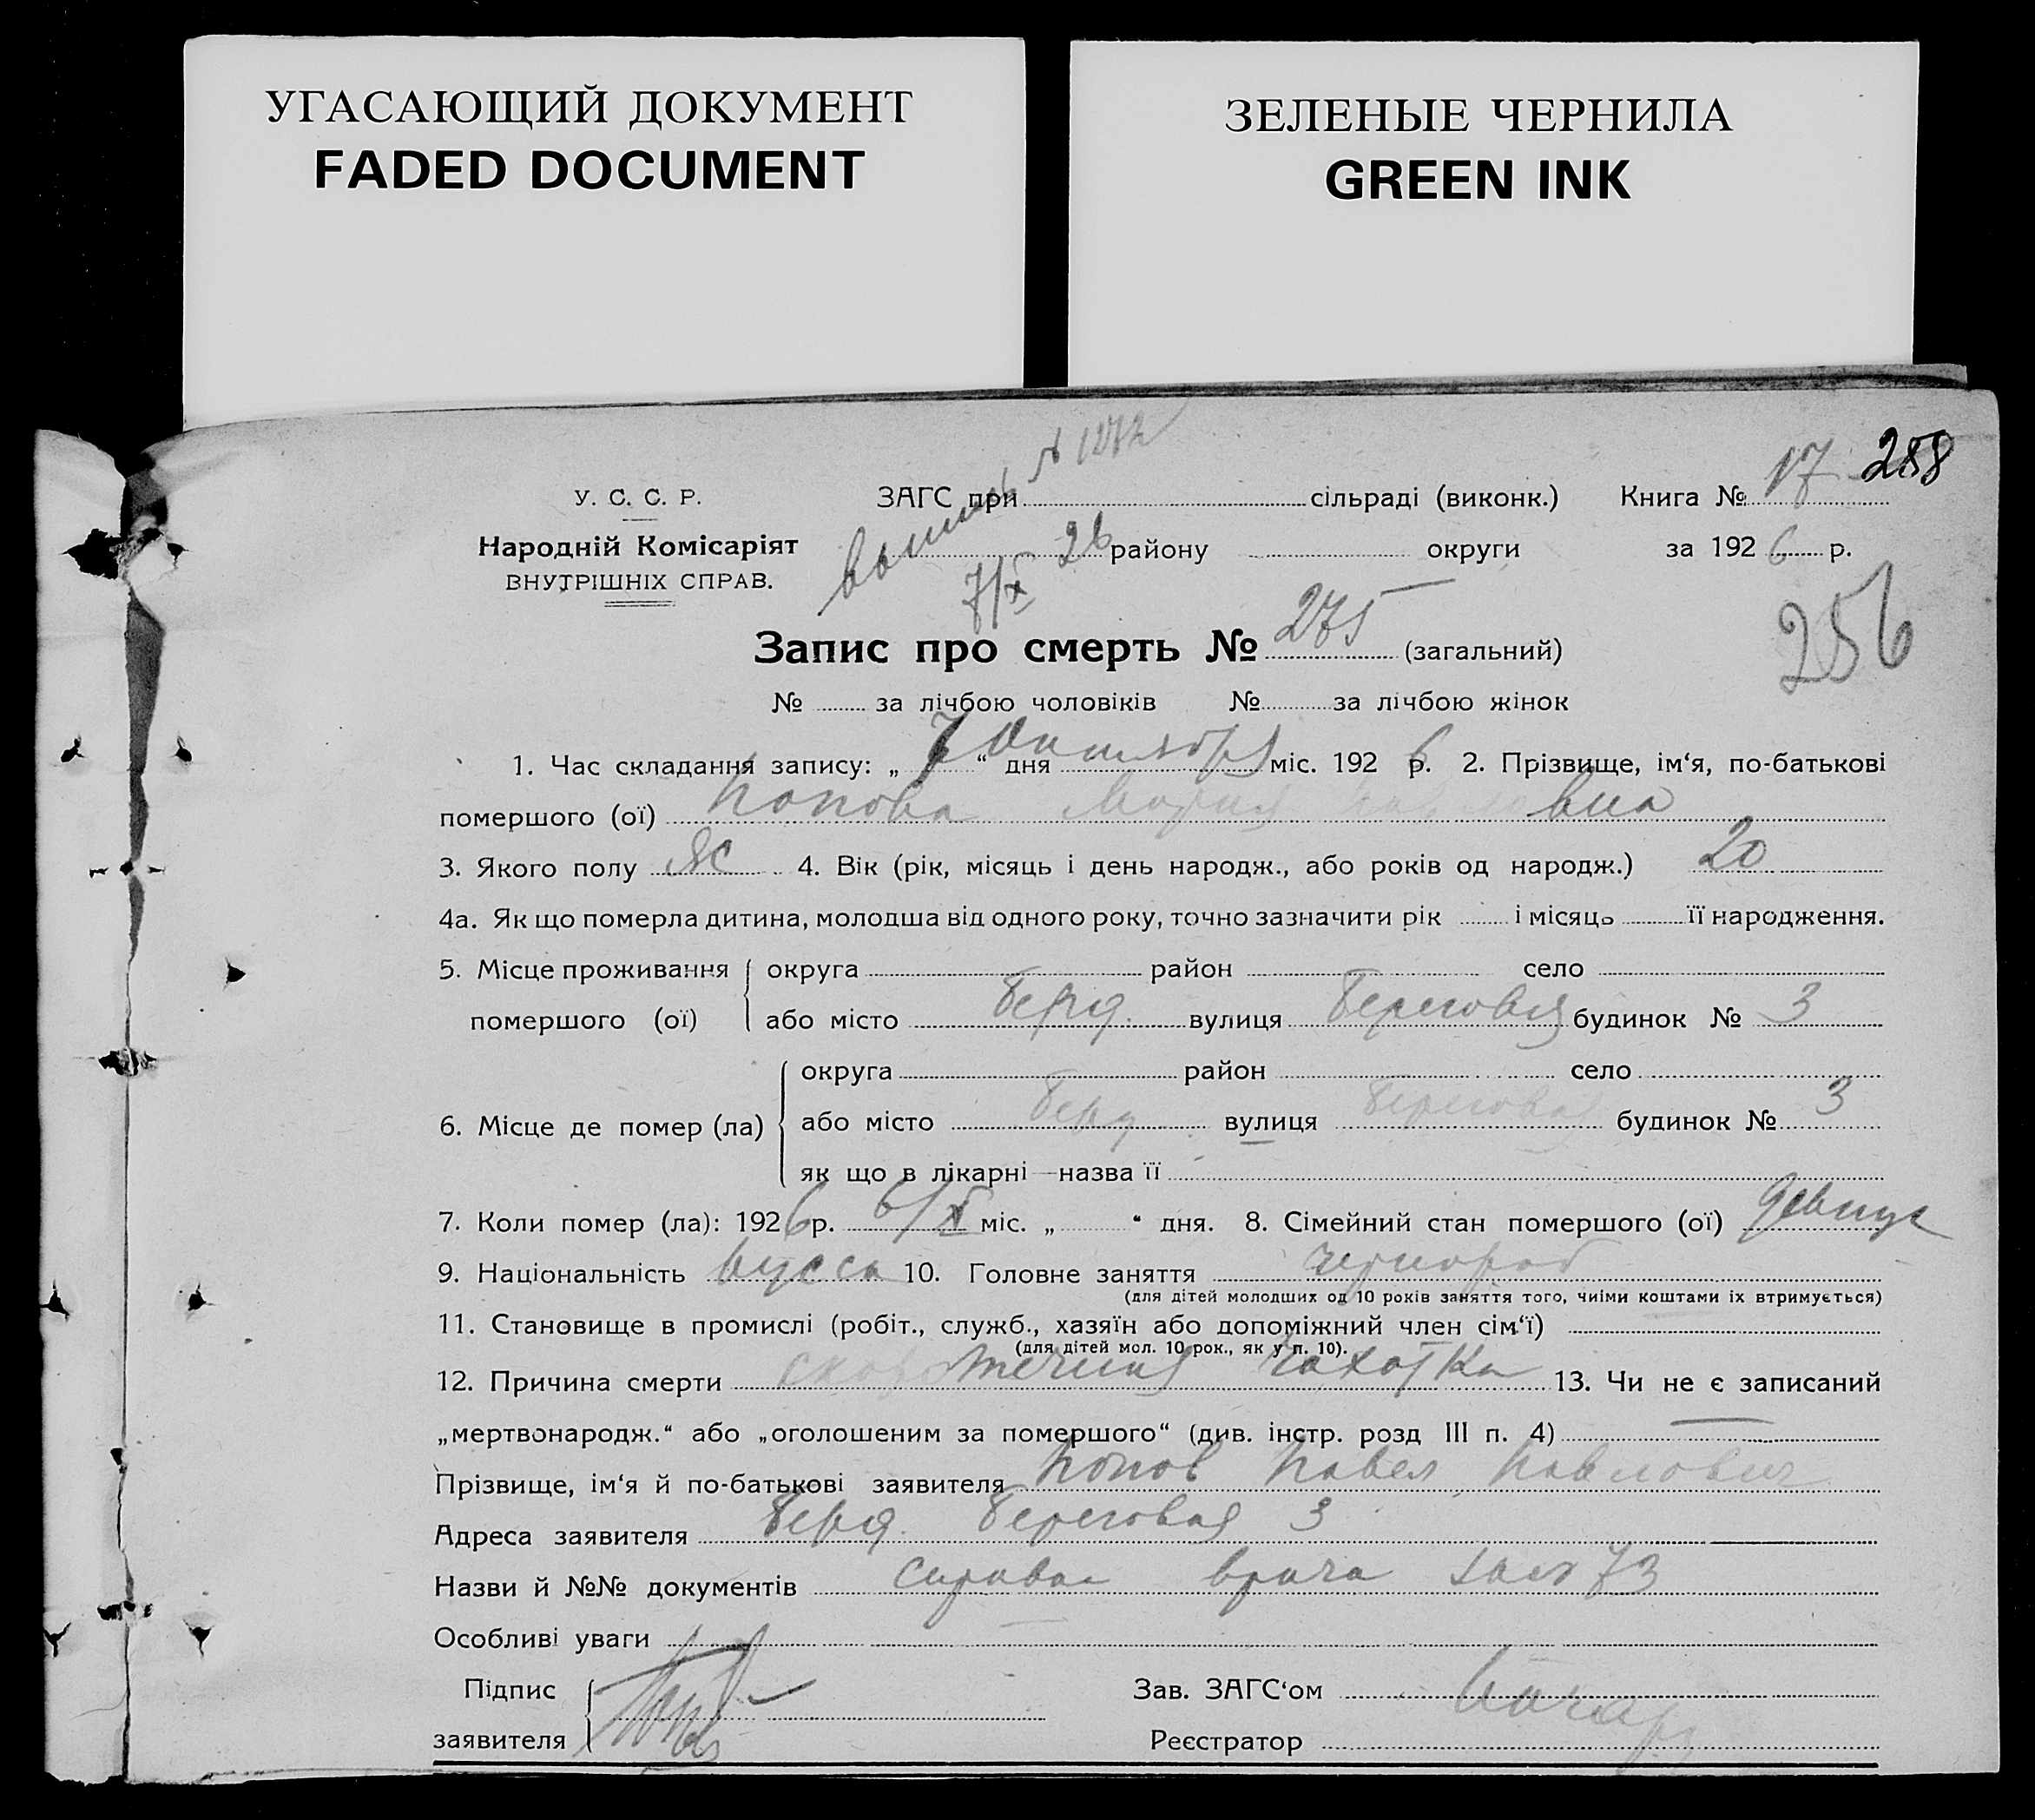 УГАСАЮЩИЙ ДОКУМЕНТ
FADED DOCUMENT
ЗЕЛЕНЫЕ ЧЕРНИЛА
GREEN INK
№ 1272
17 258
У. С. С. Р. ЗАГС при сільраді (виконк.) Книга №
Народній Комісаріят 26 району округи за 1926 р.
ВНУТРІШНІХ СПРАВ. 7/X
256
Запис про смерть № 275 (загальний)
№ за лічбою чоловіків № за лічбою жінок
1. Час складання запису: „ 7 “ дня Октября міс. 192 6 р. 2. Прізвище, ім‘я, по-батькові
помершого (ої) Попова Мария Павловна
3. Якого полу ж 4. Вік (рік, місяць і день народж., або років од народж.) 20
4а. Як що померла дитина, молодша від одного року, точно зазначити рік і місяць її народження.
5. Місце проживання округа район село
помершого (ої) або місто Берд. вулиця Береговая будинок № 3
округа район село
6. Місце де помер (ла) або місто Берд вулиця Береговая будинок № 3
як що в лікарні—назва її
7. Коли помер (ла): 1926 р. 6/X міс. „ “ дня. 8. Сімейний стан помершого (ої) девица
9. Національність русса 10. Головне заняття чернораб
(для дітей молодших од 10 років заняття того, чиїми коштами їх втримується)
11. Становище в промислі (робіт., служб., хазяїн або допоміжний член сім‘ї)
(для дітей мол. 10 рок., як у п. 10).
12. Причина смерти скоротечная чахотка 13. Чи не є записаний
„мертвонародж.“ або „оголошеним за помершого“ (див. інстр. розд III п. 4)
Прізвище, ім‘я й по-батькові заявителя Попов Павел Павлович
Адреса заявителя Берд. Береговая 3
Назви й №№ документів справка врача 73
Особливі уваги
Підпис Зав. ЗАГС‘ом
заявителя Реєстратор